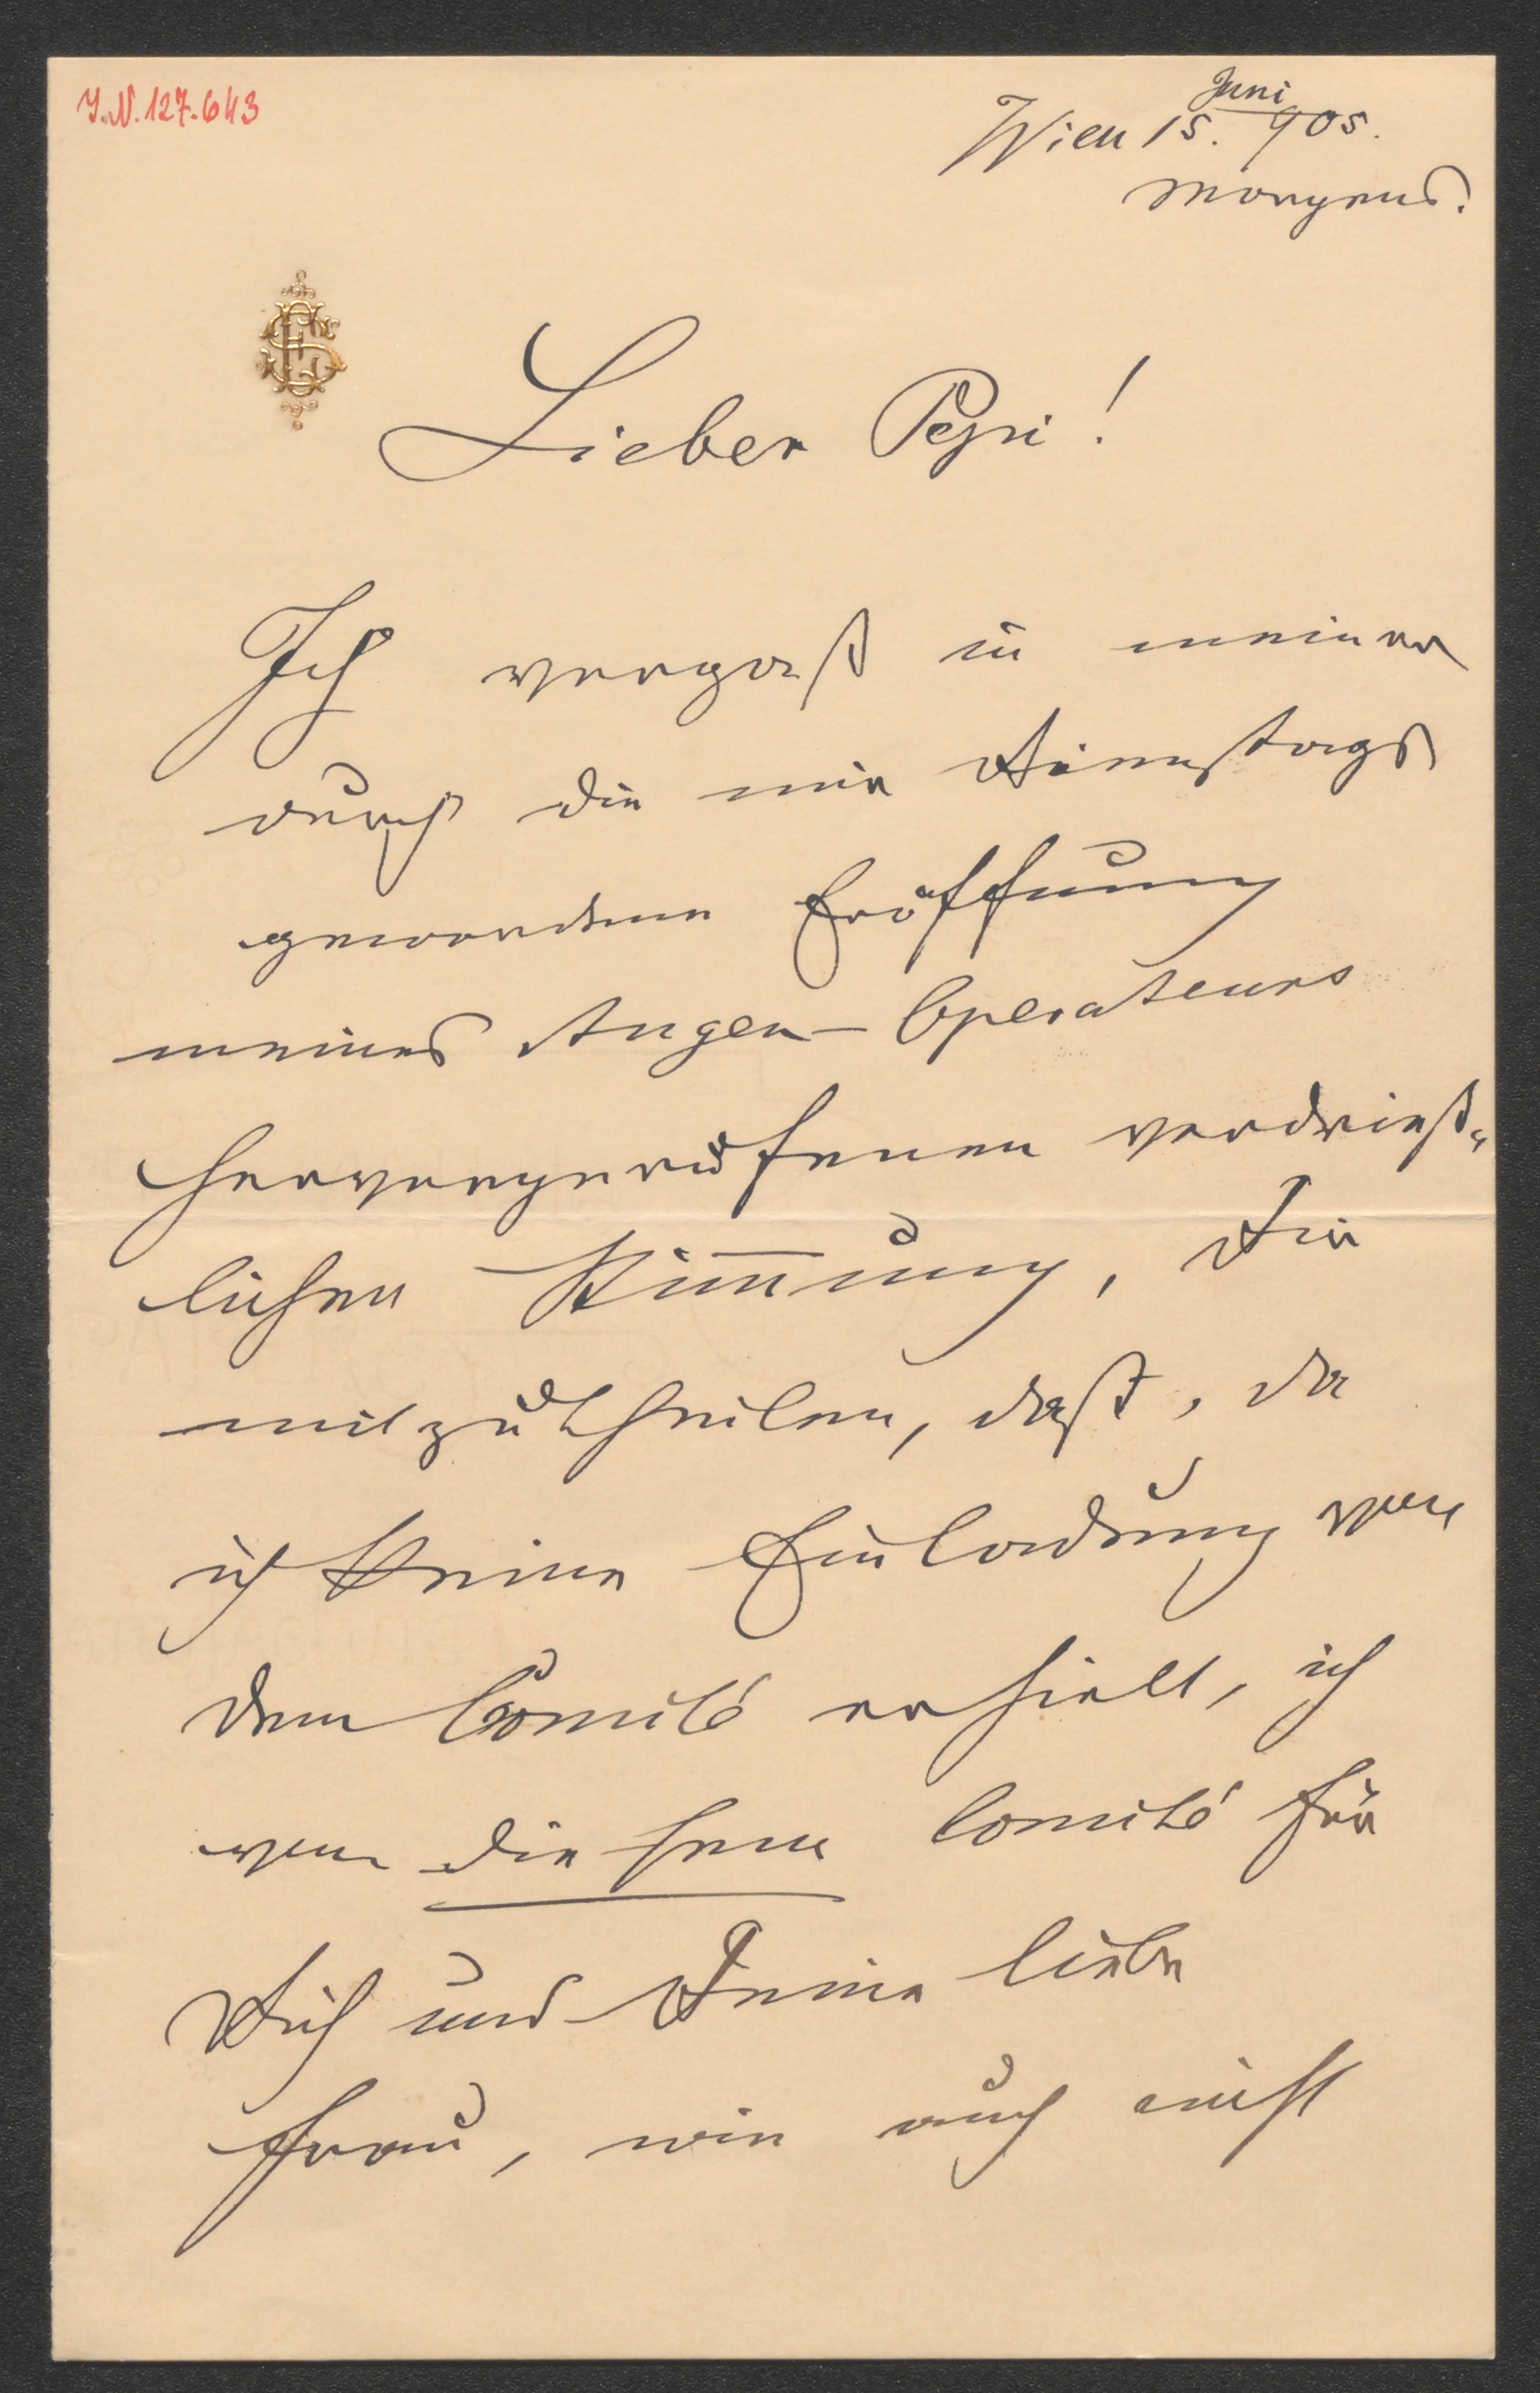 J.N. 127.643
Wien 15. Juni 905.
Morgens.
Lieber Pepi!
Ich vergaß in meiner
durch die mir Dienstags
gewordene Eröffnung
meines Augen-Operateurs
hervorgerufenen verdrieß-
lichen Stimmung, Dir
mitzutheilen, daß, da
ich keine Einladung von
dem Comité erhielt, ich
von diesem Comité für
Dich und Deine liebe
Frau, wie auch nicht